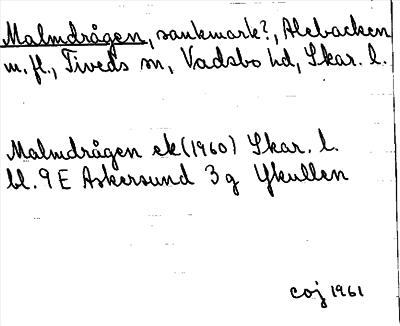 Malmdrågen, sankmark?, Alebacken
m.fl., Tiveds sn, Vadsbo hd, Skar. l.
Malmdrågen ek (1960) Skar. l.
bl. 9 E Askersund 3 g Ykullen
coj 1961